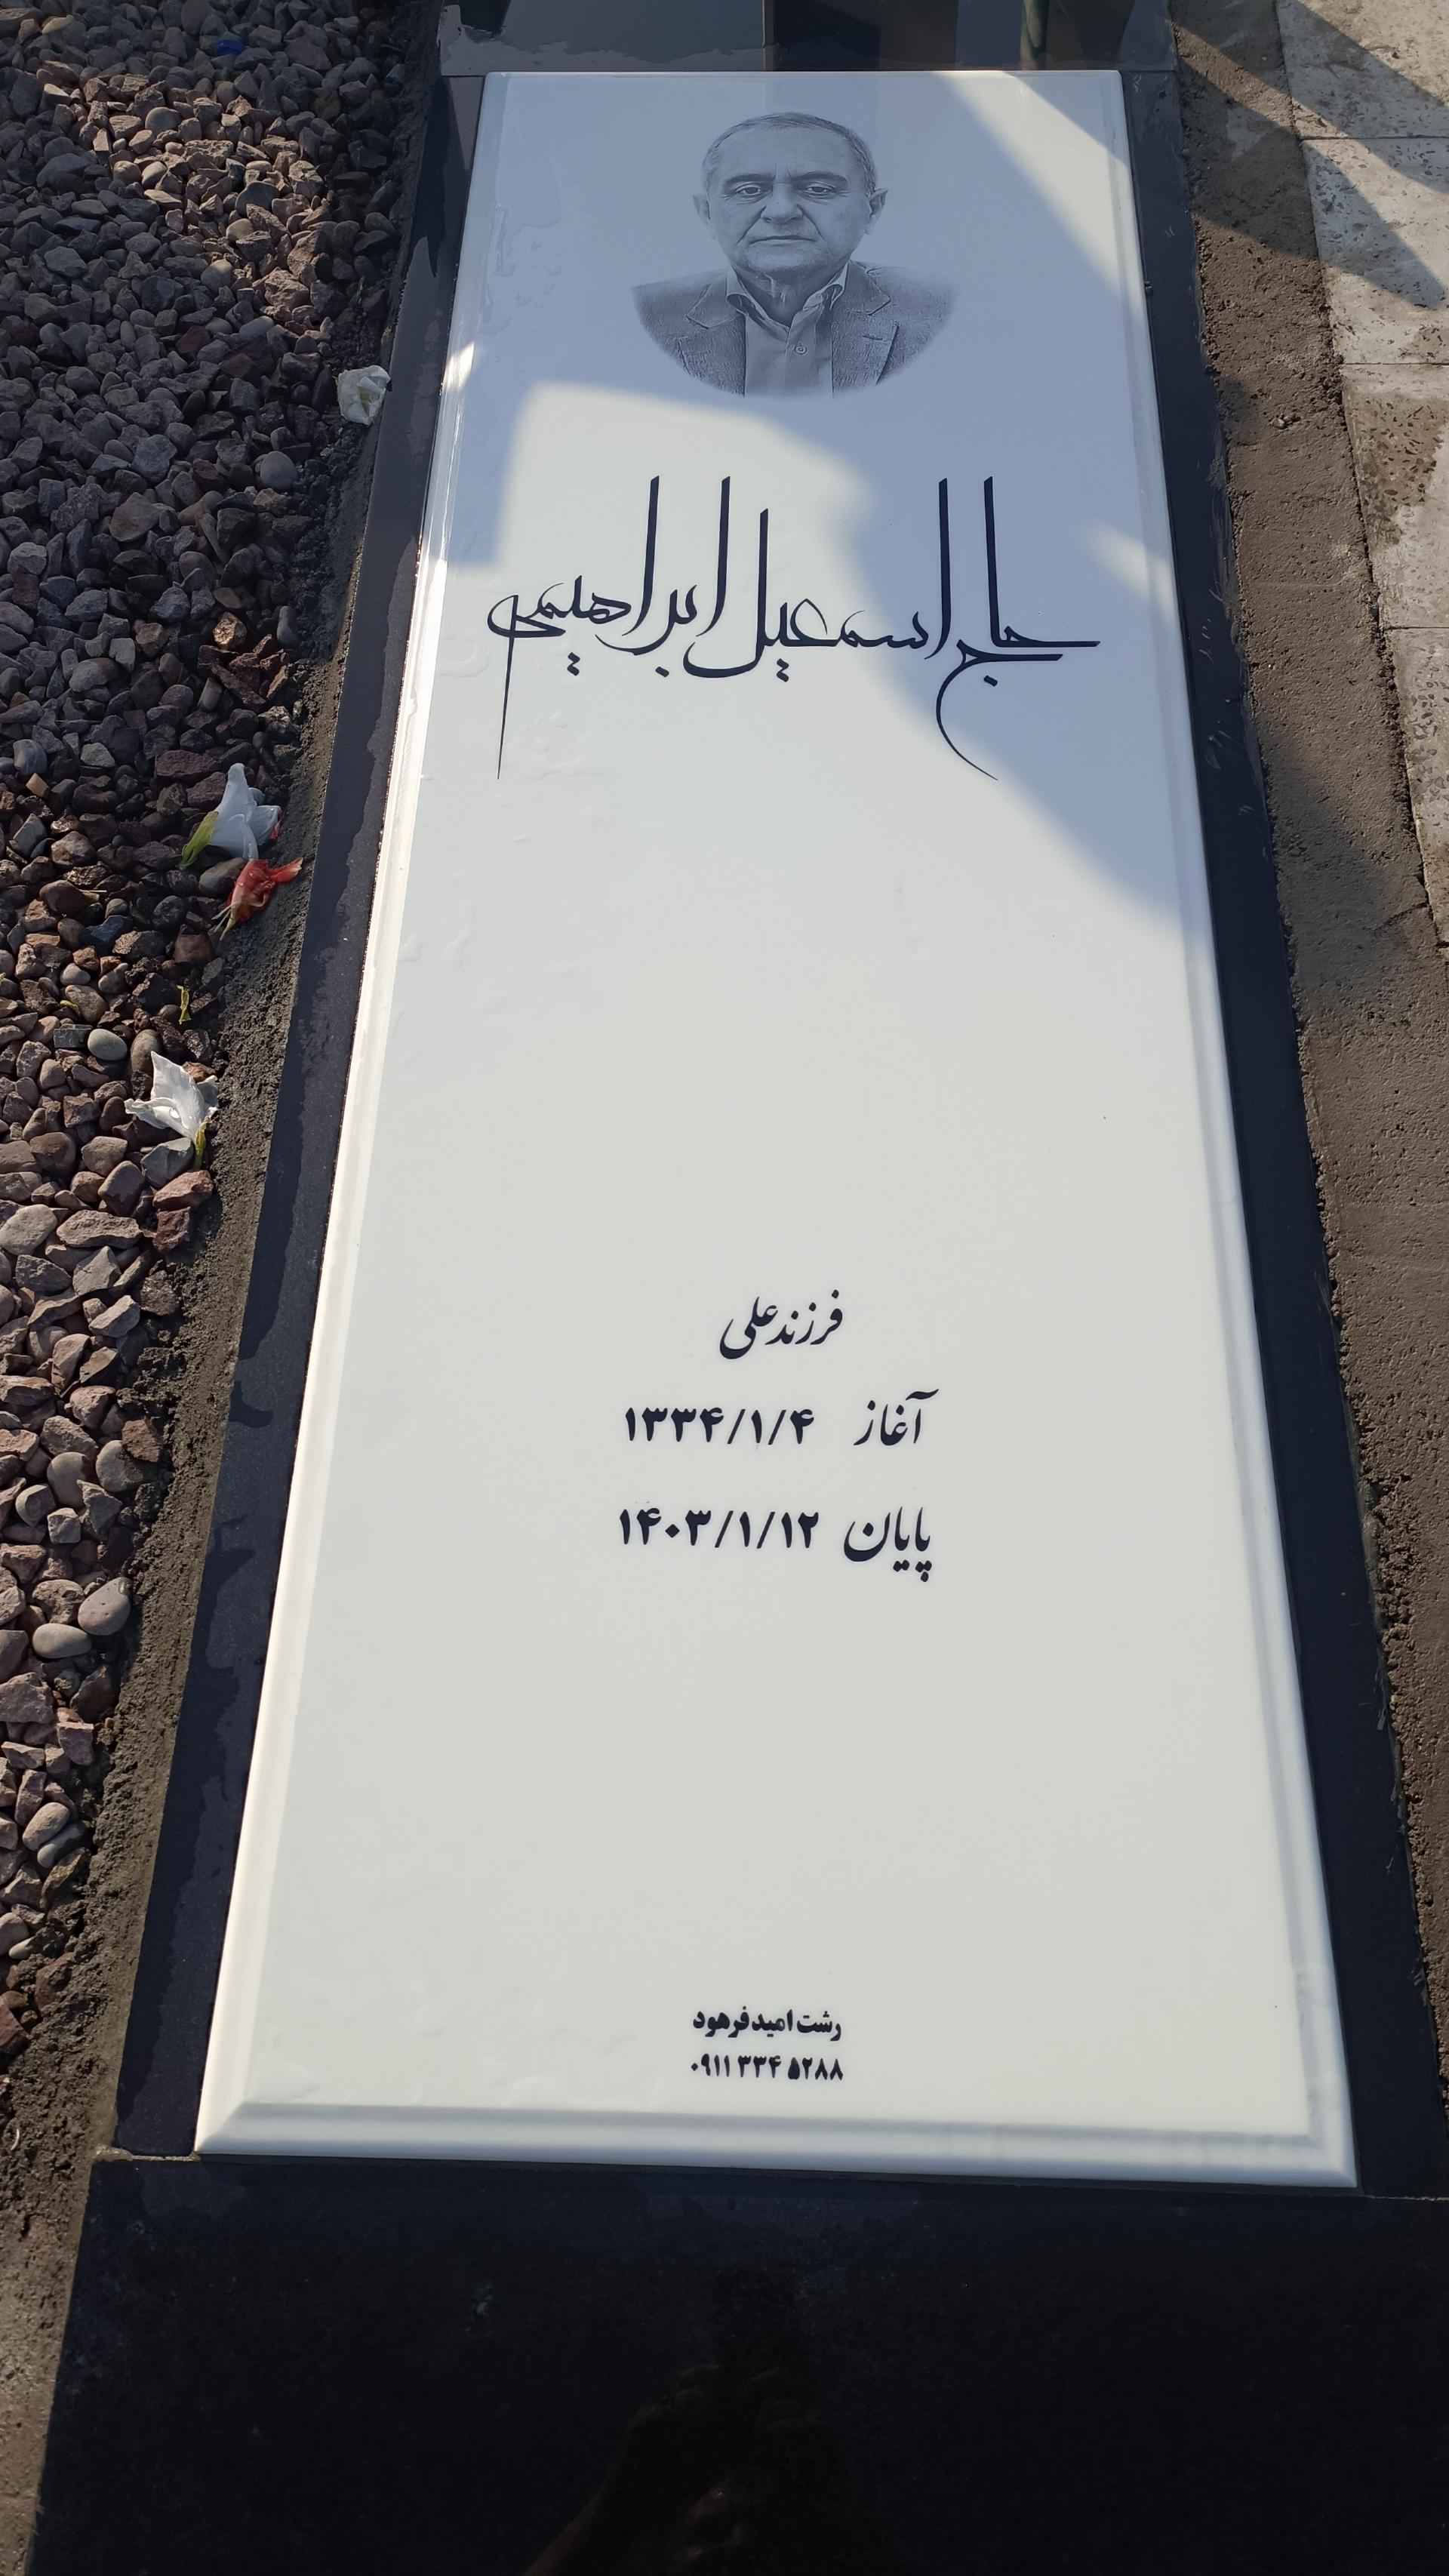 حاج اسمعیل ابراهیمی
فرزند علی
آغاز ۱۳۳۴/۱/۴
پایان ۱۴۰۳/۱/۱۲
رشت امید فرهود
۰۹۱۱ ۳۳۴ ۵۲۸۸